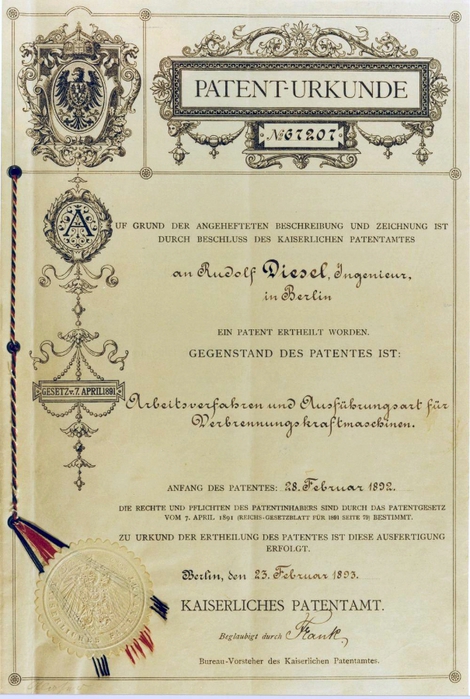 PATENT-URKUNDE
№ 67207
AUF GRUND DER ANGEHEFTETEN BESCHREIBUNG UND ZEICHNUNG IST
DURCH BESCHLUSS DES KAISERLICHEN PATENTAMTES
an Rudolf Diesel, Ingenieur,
in Berlin
EIN PATENT ERTHEILT WORDEN.
GEGENSTAND DES PATENTES IST:
GESETZ v. 7. APRIL 1891
Arbeitsverfahren und Ausführungsart für
Verbrennungskraftmaschinen.
ANFANG DES PATENTES: 28. Februar 1892.
DIE RECHTE UND PFLICHTEN DES PATENTINHABERS SIND DURCH DAS PATENTGESETZ
VOM 7. APRIL 1891 (REICHS-GESETZBLATT FÜR 1891 SEITE 79) BESTIMMT.
ZU URKUND DER ERTHEILUNG DES PATENTES IST DIESE AUSFERTIGUNG
ERFOLGT.
Berlin, den 23. Februar 1893.
KAISERLICHES PATENTAMT.
Beglaubigt durch Frank,
Bureau-Vorsteher des Kaiserlichen Patentamtes.